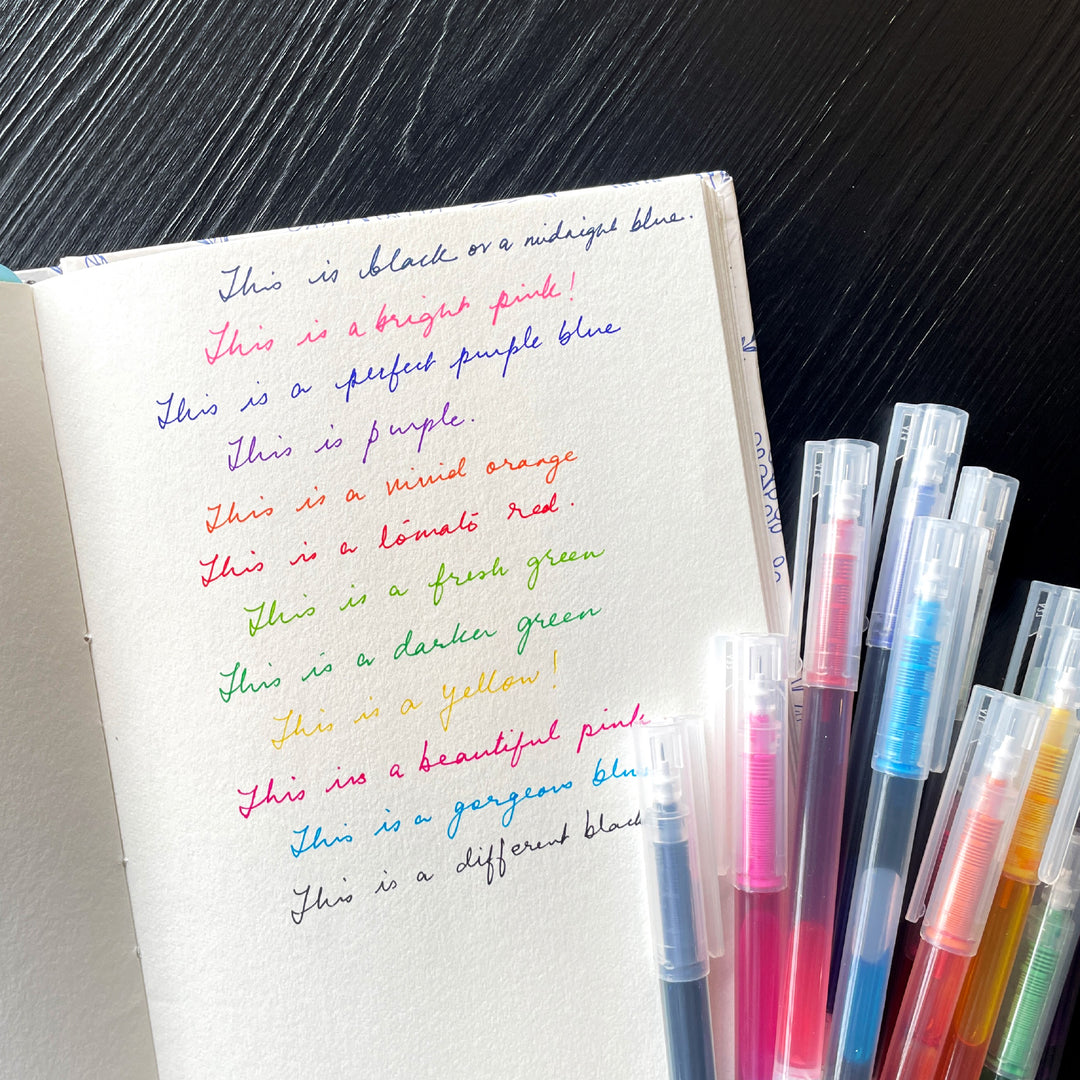 This is black or a midnight blue.
This is a bright pink!
This is a perfect purple blue
This is purple.
This is a vivid orange
This is a tomato red.
This is a fresh green
This is a darker green
This is a yellow!
This is a beautiful pink
This is a gorgeous blue
This is a different black